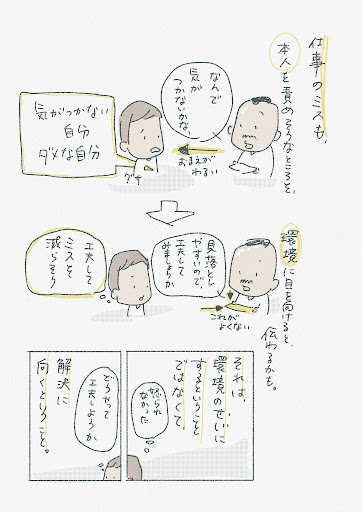 仕事のミスも、
本人を責めそうなところを、
なんで
気が
つかないかな
おまえが
わるい
気がつかない
自分
ダメな自分
グサ
環境に目を向けると、
伝わるかも。
見落とし
やすいので
工夫して
みましょうか
これが
よくない
工夫して
ミスを
減らそう
それは、
環境のせいに
するということ
ではなくて
怒られ
なかった
どうやって
工夫しようか
解決に
向くということ。